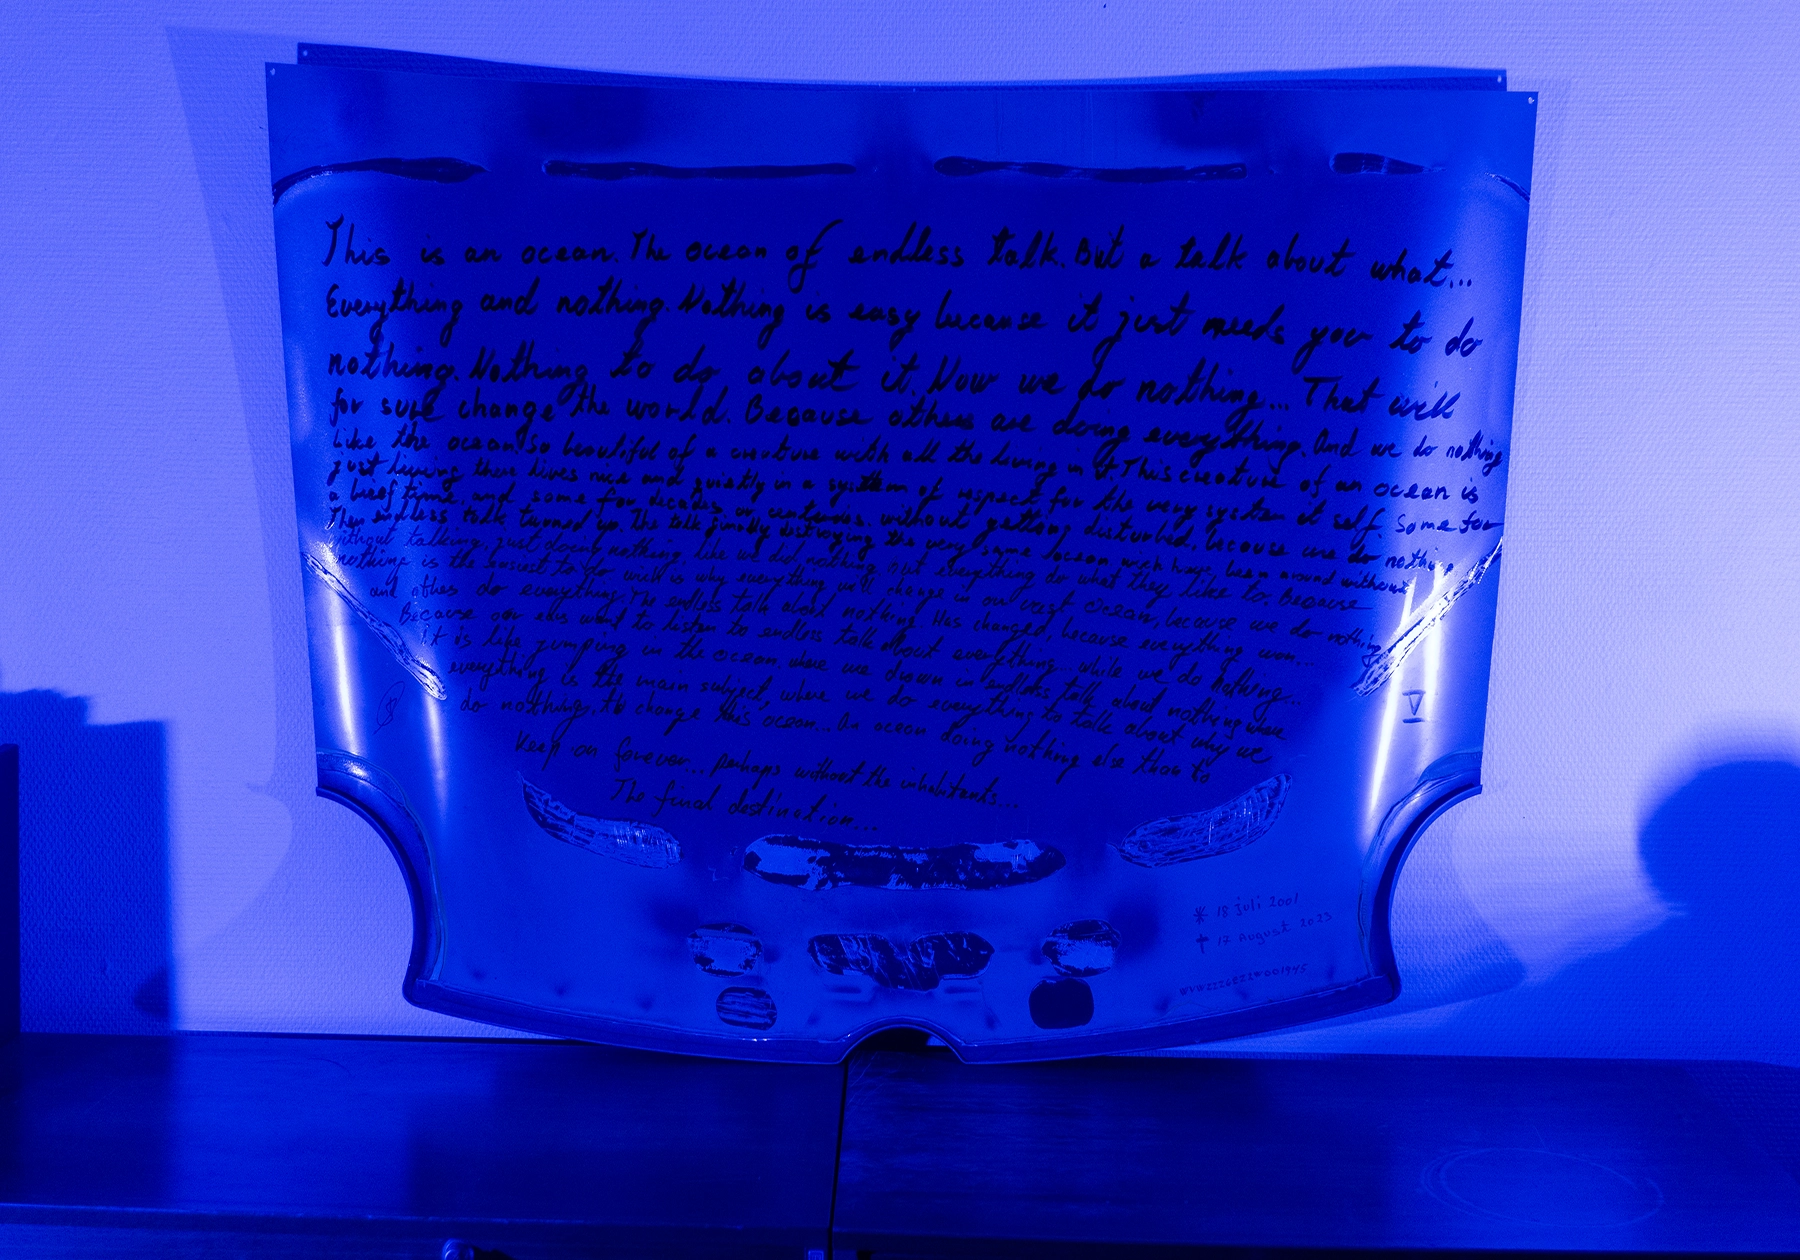 This is an ocean. The ocean of endless talk. But a talk about what...
Everything and nothing. Nothing is easy because it just needs you to do
nothing. Nothing to do about it. Now we do nothing... That will
for sure change the world. Because others are doing everything. And we do nothing
Like the ocean. So beautiful of a creature with all the living in it. This creature of an ocean is
just living there lives nice and quietly in a system of respect for the very system it self. Some for
a brief time, and some for decades or centuries. without getting disturbed, because we do nothing
Then endless talk turned up. The talk finally destroying the very same ocean wich have been around without
without talking, just doing nothing like we did nothing but everything do what they like to. Because
nothing is the easiest to do wich is why everything will change in our vast Ocean, because we do nothing
and others do everything. The endless talk about nothing. Has changed, because everything won...
Because our ears want to listen to endless talk about everything... while we do nothing...
It is like jumping in the ocean where we drown in endless talk about nothing where
everything is the main subject, where we do everything to talk about why we
do nothing, to change this ocean... An ocean doing nothing else than to
Keep on forever... perhaps without the inhabitants...
The final destination...
V
* 18 juli 2001
† 17 August 2023